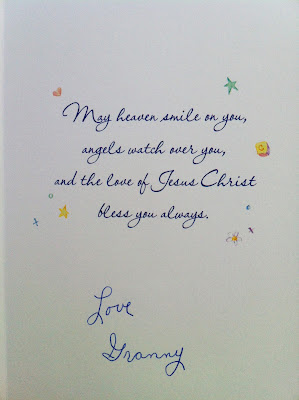 May heaven smile on you,
angels watch over you,
and the love of Jesus Christ
bless you always.
Love
Granny